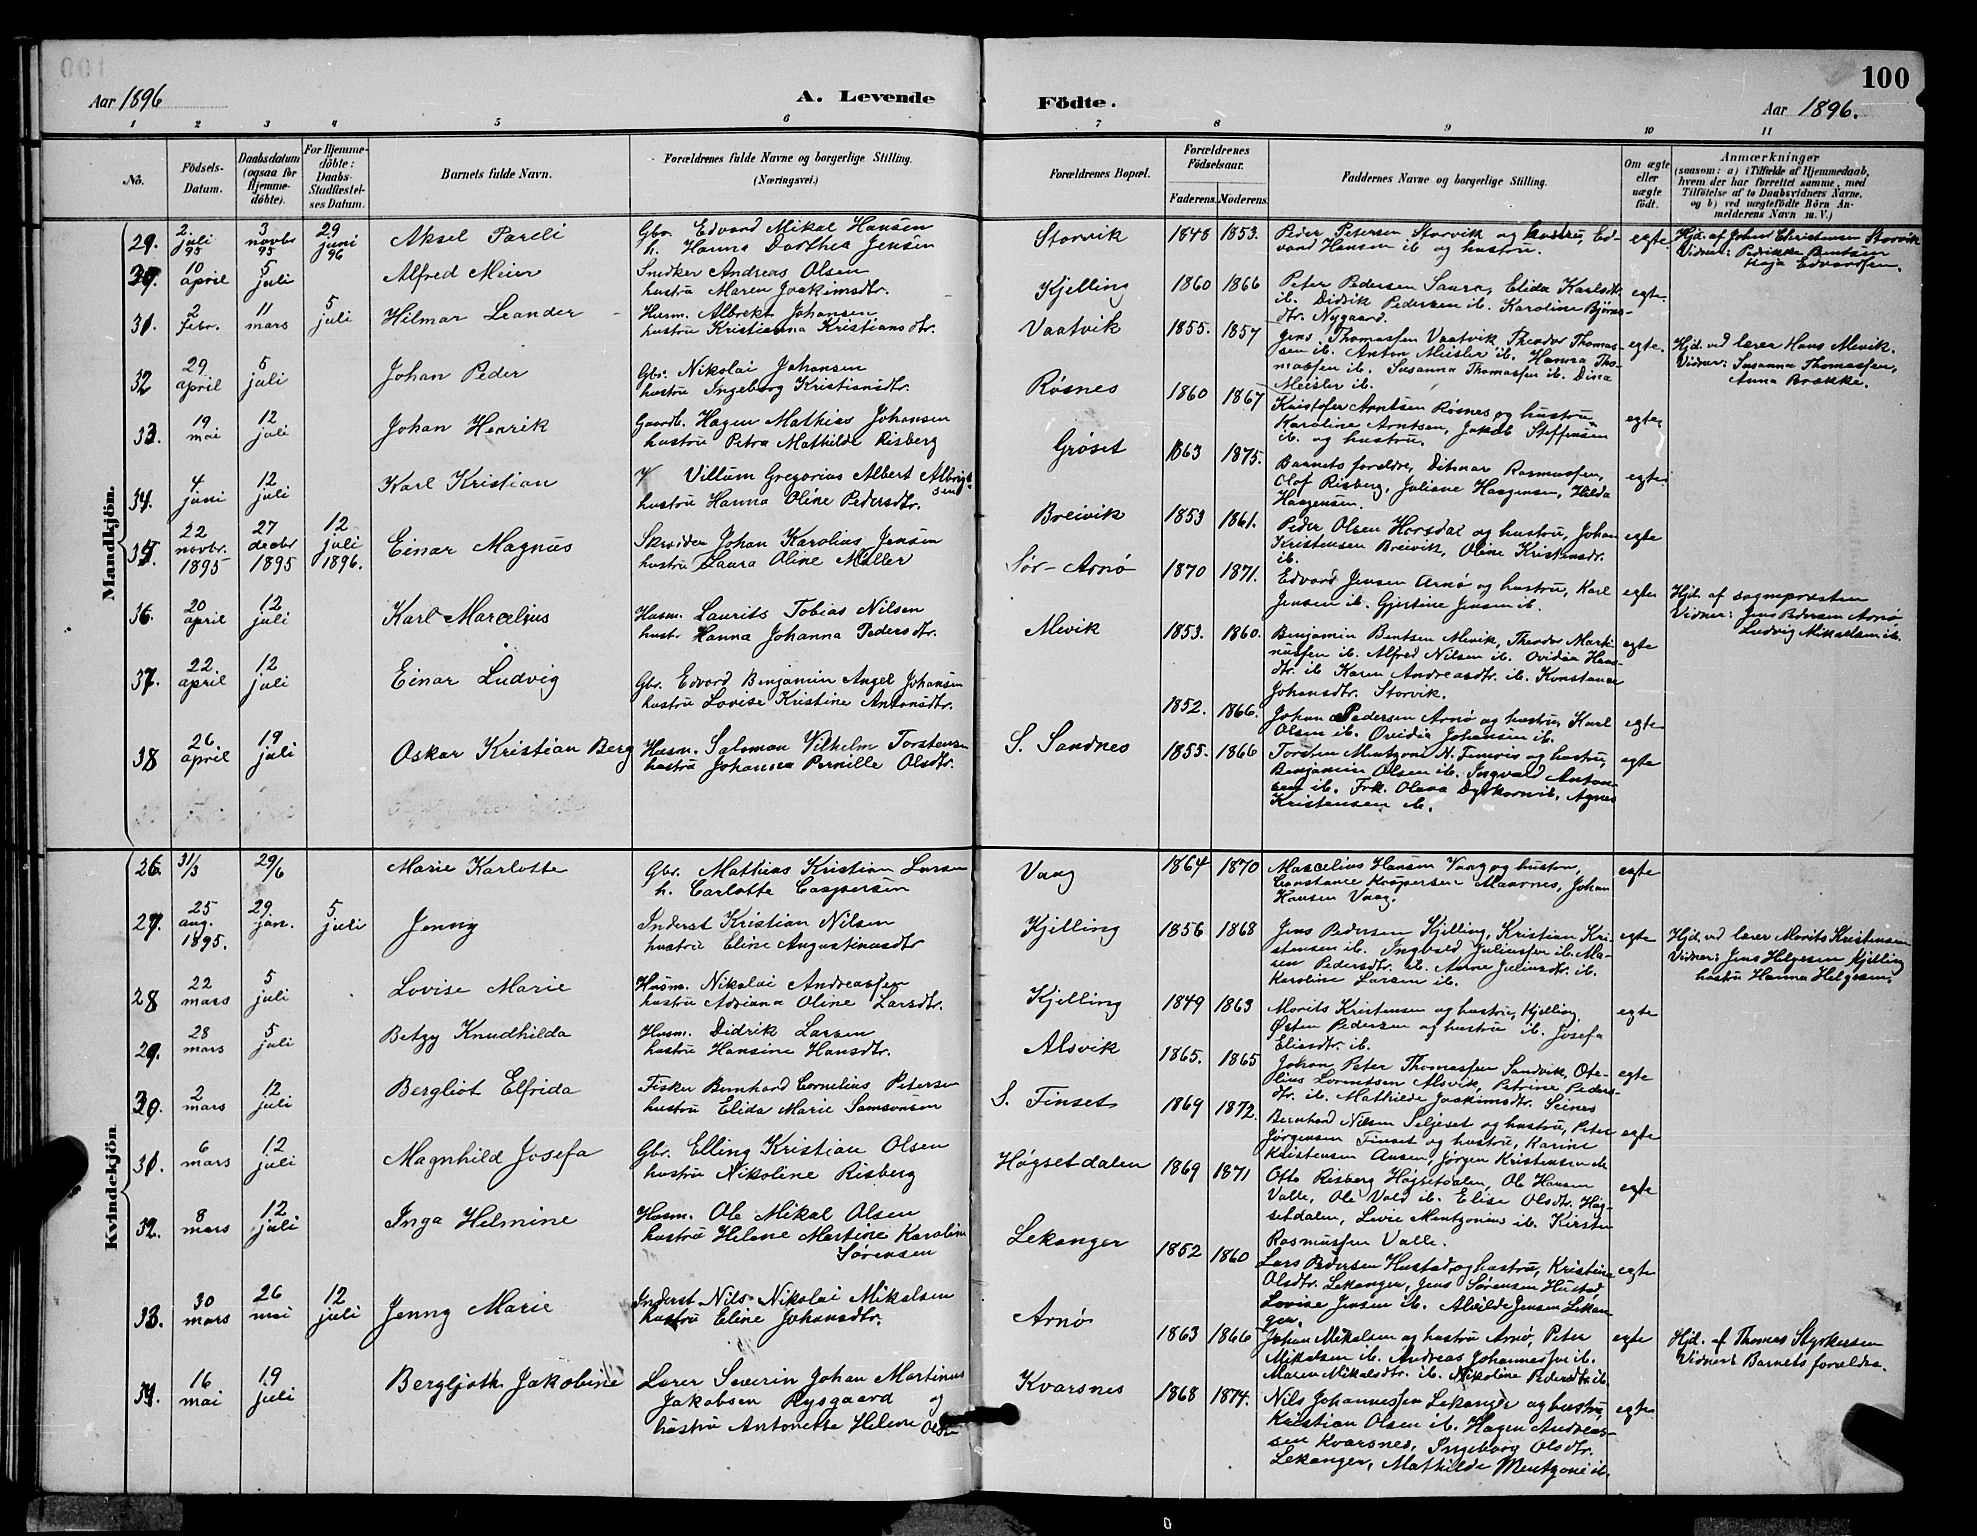 100
Aar 1896
A. Levende Födte.
Aar 1896.
1 2 3 4 5 6 7 8 9 10 11
No.
Födsels-Datum.
Daabsdatum (ogsaa for Hjemme-döbte).
For Hjemme-döbte: Daabs-Stadfæstel-ses Datum.
Barnets fulde Navn.
Forældrenes fulde Navne og borgerlige Stilling. (Næringsvei.)
Forældrenes Bopæl.
Forældrenes Födselsaar.
Faderens. Moderens.
Faddernes Navne og borgerlige Stilling.
Om ægte eller uægte födt.
Anmærkninger
(saasom: a) i Tilfælde af Hjemmedaab, hvem der har forrettet samme, med Tilföielse af to Daabsvidners Navne, og b) ved uægtefödte Börn An-melderens Navn m. V.)
Mandkjön.
29. 2. juli 95 3 novbr 95 29 juni 96 Aksel Pareli
Gbr. Edvard Mikal Hansen
h. Hanna Dorthea Jensen
Storvik 1848 1853.
Peder Petersen Storvik og hustru, Ed-
vard Hansen ib og hustru.
egte
Hjd. af Johan Christensen Storvik
Vidner: Pedrikke Bentsen
Maja Edvardsen.
30. 10 april 5 juli Alfred Meier
Snedker Andreas Olsen
hustru Maren Joakimsdtr.
Kjelling 1860 1866
Peter Pedersen Saura, Elida Karlsdtr
ib. Didrik Pedersen ib. Karoline Bjørns-
dtr. Nygaard.
egte.
31. 2 febr. 11 mars 5 juli Hilmar Leander
Husm. Albrekt Johansen
hustru Kristianna Kristiansdtr.
Vaatvik 1855. 1857
Jens Thomassen Vaatvik, Theodor Thomas-
sen ib. Anton Meisler ib. Hanna Tho-
massen ib. Susanna Thomassen ib. Dina
Meisler ib.
egte.
Hjd. ved lærer Hans Mevik.
Vidner: Susanna Thomassen,
Anna Brække.
32 29 april 5 juli Johan Peder
Gbr. Nikolai Johansen
hustru Ingeborg Kristiansdtr.
Røsnes 1860 1867
Kristofer Arntsen Røsnes og hustru
Karoline Arntsen, Jakob Steffensen
ib. og hustru.
egte
33. 19 mai 12 juli Johan Henrik
Gaardb. Hagen Mathias Johansen
hustru Petra Mathilde Risberg
Grøset 1863 1875.
Barnets forældre, Ditmar Rasmussen,
Olof Risberg, Juliane Haagensen, Hilda
Haagensen.
egte
34. 4 juni 12 juli Karl Kristian
Villum Gregorius Albert Albrigt-
sen
hustru Hanna Oline Pedersdtr.
Breivik 1853 1861.
Peder Olsen Horsdal og hustru, Johan
Kristensen Breivik, Oline Kristensdtr.
ib.
egte
35. 22 novbr. 1895 27 decbr 1895 12 juli 1896. Einar Magnus
Skrædder Johan Karolius Jensen
hustru Laura Oline Møller
Sør-Arnø 1870 1871.
Edvard Jensen Arnø og hustru, Karl
Jensen ib. Gjertine Jensen ib.
egte
Hjd. af sognepræsten
Vidner: Jens Pedersen Arnø
Ludvig Mikaelsen ib.
36. 20 april 12 juli Karl Marcelius
Husm. Laurits Tobias Nilsen
hustr. Hanna Johanna Pedersdtr.
Mevik 1853. 1860.
Benjamin Bentsen Mevik, Theodor Marti-
nussen ib. Alfred Nilsen ib. Ovidia Hans-
dtr. ib Karen Andreasdtr. ib. Konstance
Johansdtr. Storvik.
egte
37. 22 april 12 juli Einar Ludvig
Gbr. Edvard Benjamin Angel Johansen
hustru Lovise Kristine Antonsdtr.
1852. 1866.
Johan Pedersen Arnø og hustru, Karl
Olsen ib. Ovidia Johansen ib.
egte
38 26 april 19 juli Oskar Kristian Berg
Husm. Salomon Vilhelm Torstensen
hustru Johanna Pernille Olsdtr.
S. Sandnes 1855. 1866
Torsten Mentzoni N. Finvis og hustru,
Benjamin Olsen ib. Ingvald Anton-
sen ib. Frk. Olava Dyrkorn ib. Agnes
Kristensen ib.
egte
Kvindekjön
26. 31/3 29/6 Marie Karlotte
Gbr. Mathias Kristian Larsen
h. Carlotte Caspersen
Vaag 1864 1870
Marcelius Hansen Vaag og hustru,
Constance Kaspersen Maarnes, Johan
Hansen Vaag.
egte
27. 25 aug. 1895. 29 jan. 5 juli Jenny
Inderst Kristian Nilsen
hustru Eline Augustinusdtr
Kjelling 1856 1868
Jens Pedersen Kjelling, Kristian Kri-
stensen ib. Ingvald Juliussen ib. Ma-
sen Pedersdtr. ib. Anne Juliusdtr. ib.
Karoline Larsen ib.
egte
Hjd. ved lærer Morits Kristensen
Vidner: Jens Helgesen Kjelling
hustru Hanna Helgesen.
28 22 mars 5 juli Lovise Marie
Husm. Nikolai Andreassen
hustru Adriana Oline Larsdtr.
Kjelling 1849 1863
Morits Kristensen og hustru, Kjelling.
Østen Pedersen og hustru ib. Josefa
Eliasdtr. ib.
egte
29. 28 mars 5 juli Betzy Knudhilda
Husm. Didrik Larsen
hustru Hansine Hansdtr.
Alsvik 1865. 1865
Johan Peter Thomassen Sandvik, Ote-
lius Lorentsen Alsvik, Petrine Peders-
dtr. ib. Mathilde Joakimsdtr. Seines
egte
30. 2 mars 12 juli Bergliot Elfrida
Fisker Bernhard Cornelius Petersen
hustru Elida Marie Samsonsen
S. Finset 1869 1872.
Bernhard Nilsen Seljeset og hustru, Peter
Jørgensen Finset og hustru, Karine
Kristensen Ansen, Jørgen Kristensen ib
egte
31. 6 mars 12 juli Magnhild Josefa
Gbr. Elling Kristian Olsen
hustru Nikoline Risberg
Høgsetdalen 1869 1871
Otto Risberg Høgsetdalen, Ole Hansen
Valle, Ole Vold ib. Elise Olsdtr. Høg-
setdalen, Lovie Mentzonius ib. Kirsten
Rasmussen Valle.
egte
32. 8 mars 12 juli Inga Helmine
Husm. Ole Mikal Olsen
hustru Helene Martine Karoline
Sørensen
Lekanger 1852 1860
Lars Pedersen Hustad og hustru, Kristine
Olsdtr. Lekanger, Jens Sørensen Hustad
Lovise Jensen ib. Alvilde Jensen Lekan-
ger.
egte
33. 30 mars 26 mai 12 juli Jenny Marie
Inderst Nils Nikolai Mikalsen
hustru Eline Johansdtr.
Arnø 1863 1866
Johan Mikalsen og hustru Arnø, Peter
Mikalsen ib. Andreas Johannessen ib.
Maren Mikalsdtr. ib. Nikoline Pedersdtr. ib.
egte
Hjd. af Thomas Styrkersen
Vidner: Barnets forældre.
34. 16 mai 19 juli Bergljoth Jakobine
Lærer Severin Johan Martinus
Jakobsen Rysgaard og
hustru Antonette Helene Olsen
Kvarsnes 1868 1874.
Nils Johannessen Lekanger og hustru,
Kristian Olsen ib. Hagen Andreas-
sen Kvarsnes, Ingeborg Olsdtr.
Lekanger, Mathilde Mentzoni ib.
egte